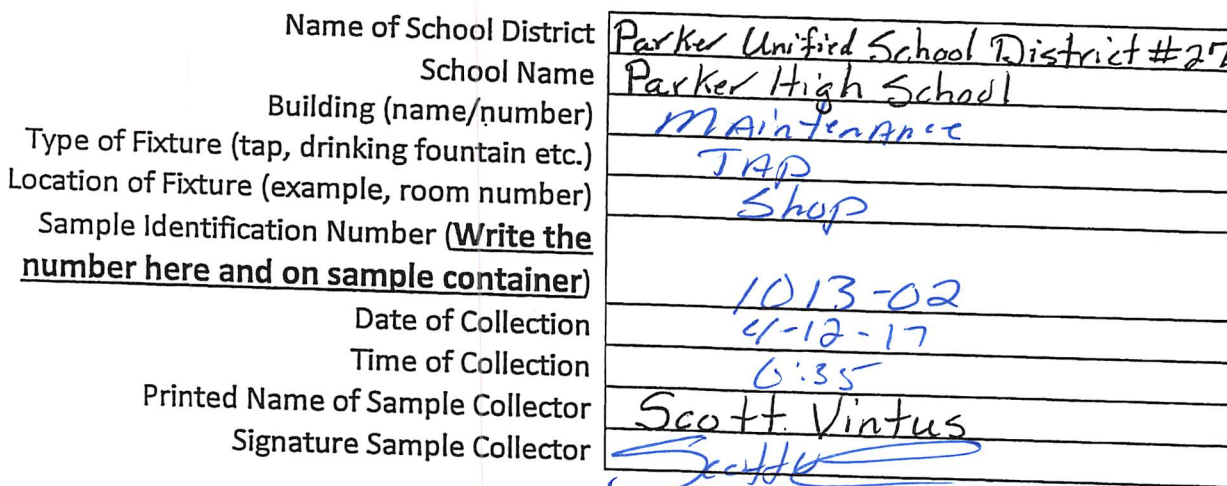 Name of School District Parker Unified School District #27
School Name Parker High School
Building (name/number) Maintenance
Type of Fixture (tap, drinking fountain etc.) TAP
Location of Fixture (example, room number) Shop
Sample Identification Number (Write the
number here and on sample container) 1013-02
Date of Collection 4-12-17
Time of Collection 6:35
Printed Name of Sample Collector Scott Vintus
Signature Sample Collector